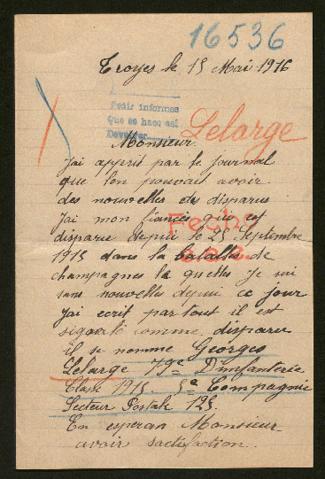 16536
Troyes le 15 Mai 1916
Avoir informes
Que se hace así
Lelarge
Monsieur
j'ai apprit par le journal
que l'on pouvait avoir
des nouvelles des disparus
J'ai mon fiancés qui est
disparu depui le 25 Septembre
1915 dans la batailles de
champagnes la quelles je sui
sans nouvelles depui ce jour
J'ai ecrit par tout il est
signalé comme disparu
il se nomme Georges
Lelarge 79e D'infanterie
Classe 1915 5e Compagnie
Secteur Postale 125
En esperan Monsieur
avoir sactisfaction.
Fecha